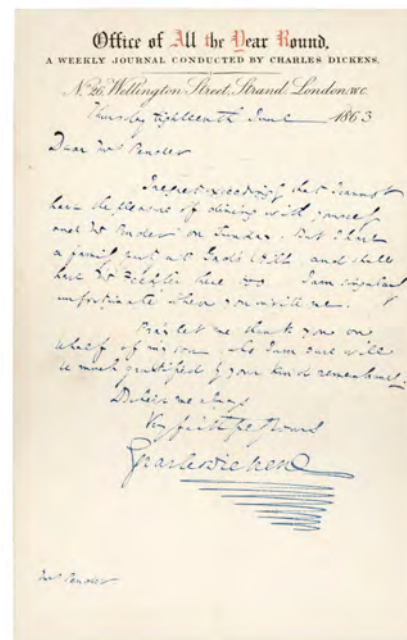 Office of All the Year Round,
A WEEKLY JOURNAL CONDUCTED BY CHARLES DICKENS.
No. 26, Wellington Street, Strand, London. W.C.
Thursday Eighteenth June 1863
Dear Mrs Pender
I regret exceedingly that I cannot
have the pleasure of dining with yourself
and Mr Pender on Sunday. But I have
a family party at Gad's Hill, and shall
have Mr Fechter there too. I am singularly
unfortunate when you invite me.
Pray let me thank you on
behalf of my son. He I am sure will
be much gratified by your kind remembrance.
Believe me always
Very faithfully Yours
Charles Dickens
Mrs Pender.